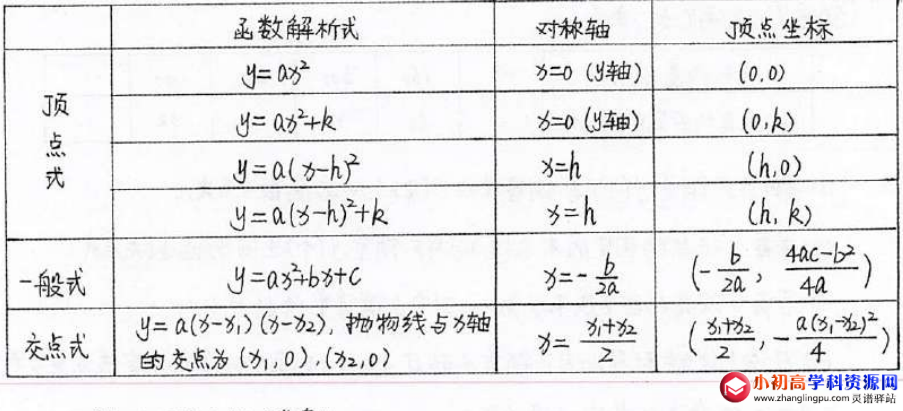 函数解析式 对称轴 顶点坐标
顶点式
y=ax² x=0 (y轴) (0,0)
y=ax²+k x=0 (y轴) (0,k)
y=a(x-h)² x=h (h,0)
y=a(x-h)²+k x=h (h,k)
一般式 y=ax²+bx+c x=-b/2a (-b/2a, 4ac-b²/4a)
交点式 y=a(x-x₁)(x-x₂), 抛物线与x轴 x=x₁+x₂/2 (x₁+x₂/2, -a(x₁-x₂)²/4)
的交点为(x₁,0).(x₂,0)
小初高学科资源网
www.zhanglingpu.com 灵谱驿站